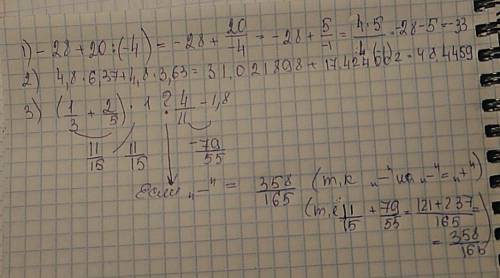 1) -28+20:(-4) = -28 + 20/-4 = -28 + 5/-1 = 4·5/4 = -28-5=-33
2) 4,8·6,37+4,8·3,63= 31,021898 + 17,424 = 48,4459
3) (1/3 + 2/5) · 1 ? 4/11 - 1,8
11/15 11/15 -79/55
Если „-" = 358/165 (т,к „-" на „-" = „+")
(т,е 11/15 + 79/55 = 121+237/165 =
= 358/165)